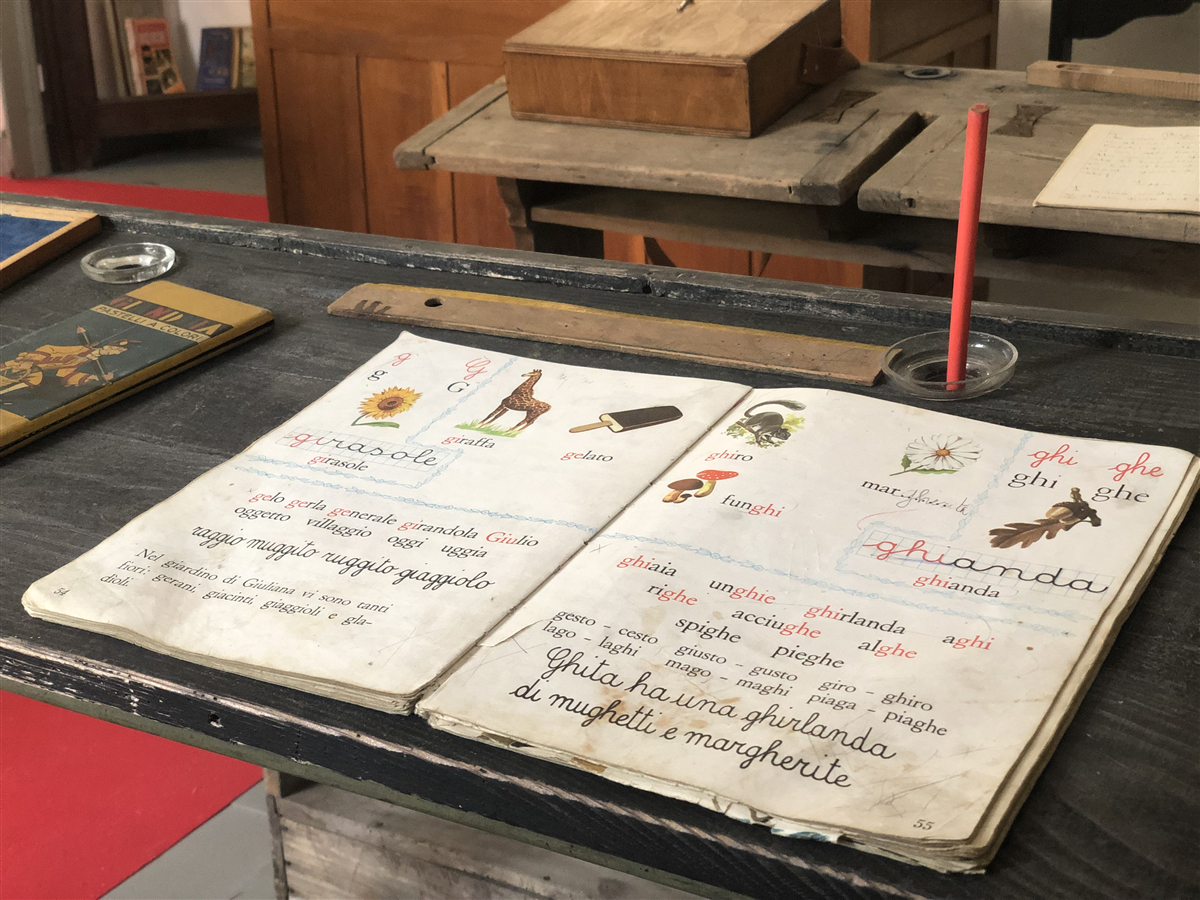 PASTELLI A COLORI
g G
g G
giraffa
gelato
girasole
girasole
gelo gerla generale girandola Giulio
oggetto villaggio oggi uggia
raggio muggito ruggito giaggiolo
Nel giardino di Giuliana vi sono tanti
fiori: gerani, giacinti, giaggioli e gla-
dioli.
54
ghiro
funghi
mar
ghi ghe
ghi ghe
ghianda
ghianda
ghiaia unghie ghirlanda aghi
righe acciughe alghe
spighe pieghe
gesto - cesto giusto - gusto giro - ghiro
lago - laghi mago - maghi piaga - piaghe
Ghita ha una ghirlanda
di mughetti e margherite
55